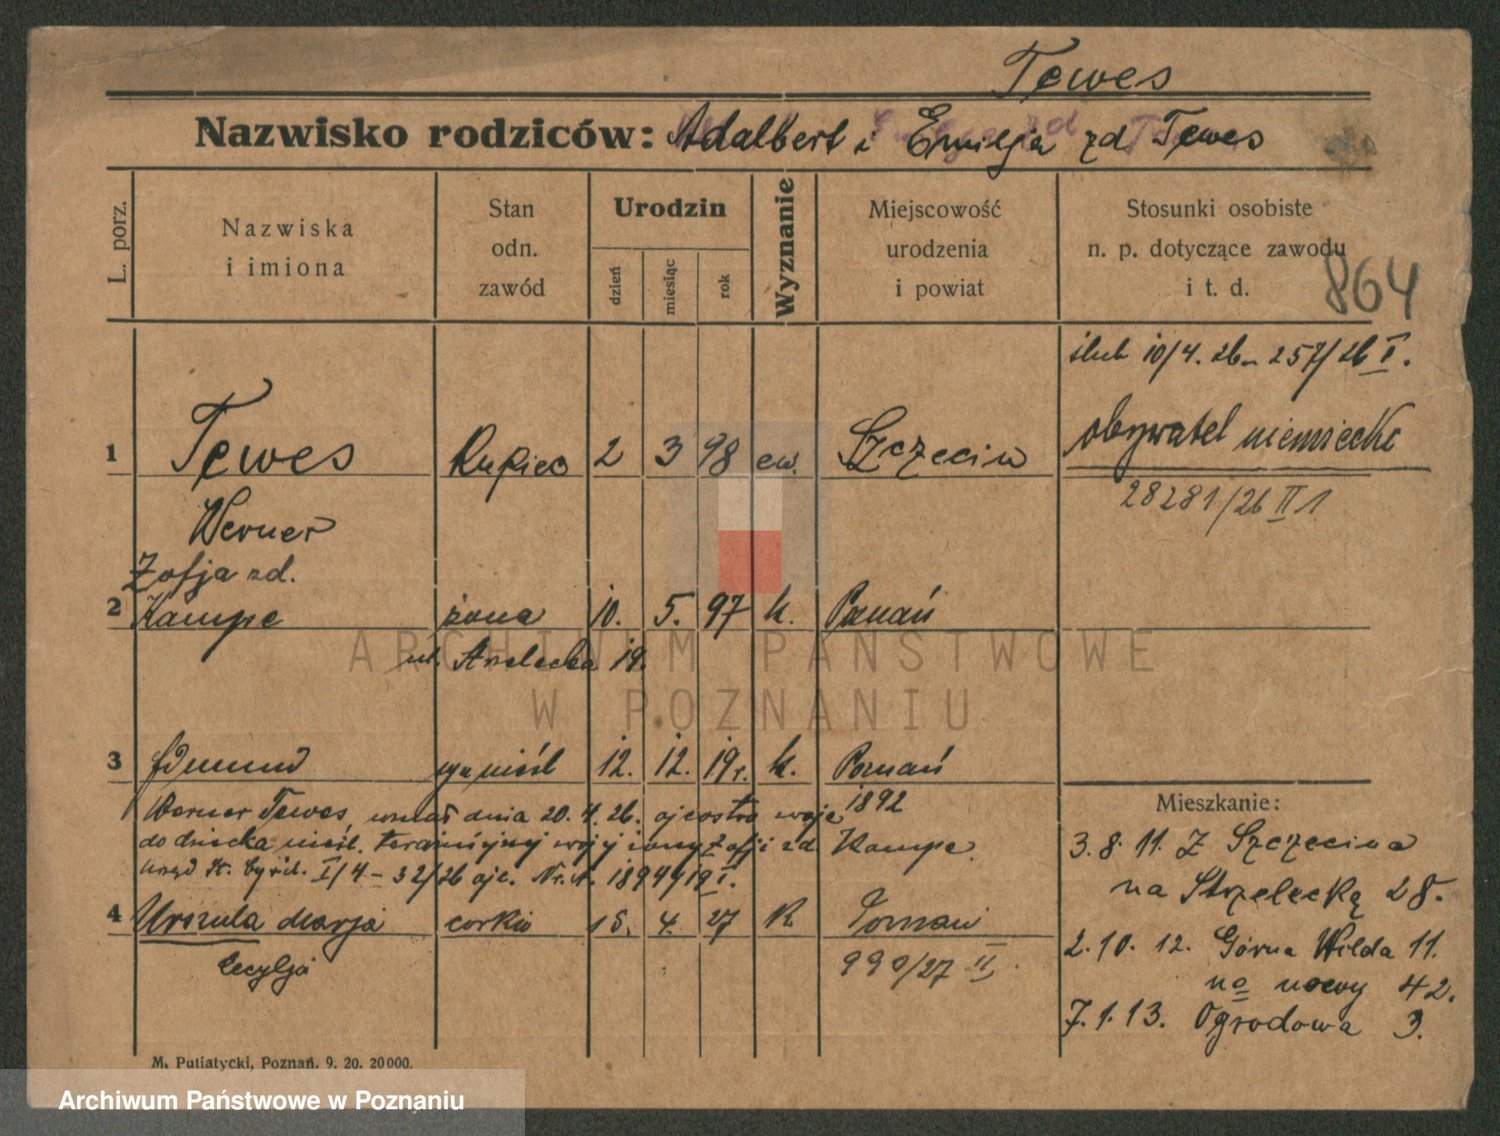 Tewes
Nazwisko rodziców: Adalbert i Emilja zd Tewes
L. porz.
Nazwiska
i imiona
Stan
odn.
zawód
Urodzin
dzień
miesiąc
rok
Wyznanie
Miejscowość
urodzenia
i powiat
Stosunki osobiste
n. p. dotyczące zawodu
i t. d.
864
ślub 10/4. 26 - 257/26 I.
1 Tewes Kupiec 2 3 98 ew. Szczecin obywatel niemiecki
28281/26 II 1
Werner
Zofja zd.
2 Kampe żona 10. 5. 97 k. Poznań
ul. Strzelecka 19.
3 Edmund syn nieśl 12. 12. 19r. k. Poznań
1892
Werner Tewes, uznał dnia 20. 4. 26. ojcostwo swoje
do dziecka nieśl. żony Zofji zd Kampe.
I/4 - 32/26
4 Urszula Marja córka 15. 4. 27 k Poznań
Cecylja
990/27 II.
Mieszkanie:
3. 8. 11. Z Szczecina
na Strzelecką 28.
2. 10. 12. Górna Wilda 11.
no nowy 42.
7. 1. 13. Ogrodowa 3.
M. Putiatycki, Poznań. 9. 20. 20000.
ARCHIWUM PAŃSTWOWE
W POZNANIU
Archiwum Państwowe w Poznaniu